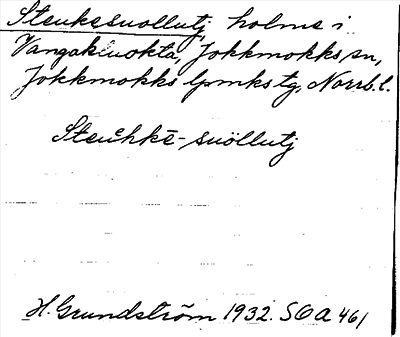 Steukesuollutj, holme i
Vangakluokta, Jokkmokks sn,
Jokkmokks lpmks tg, Norrb. l.
Steuhkē-suöllutj
H. Grundström 1932. SOA 461